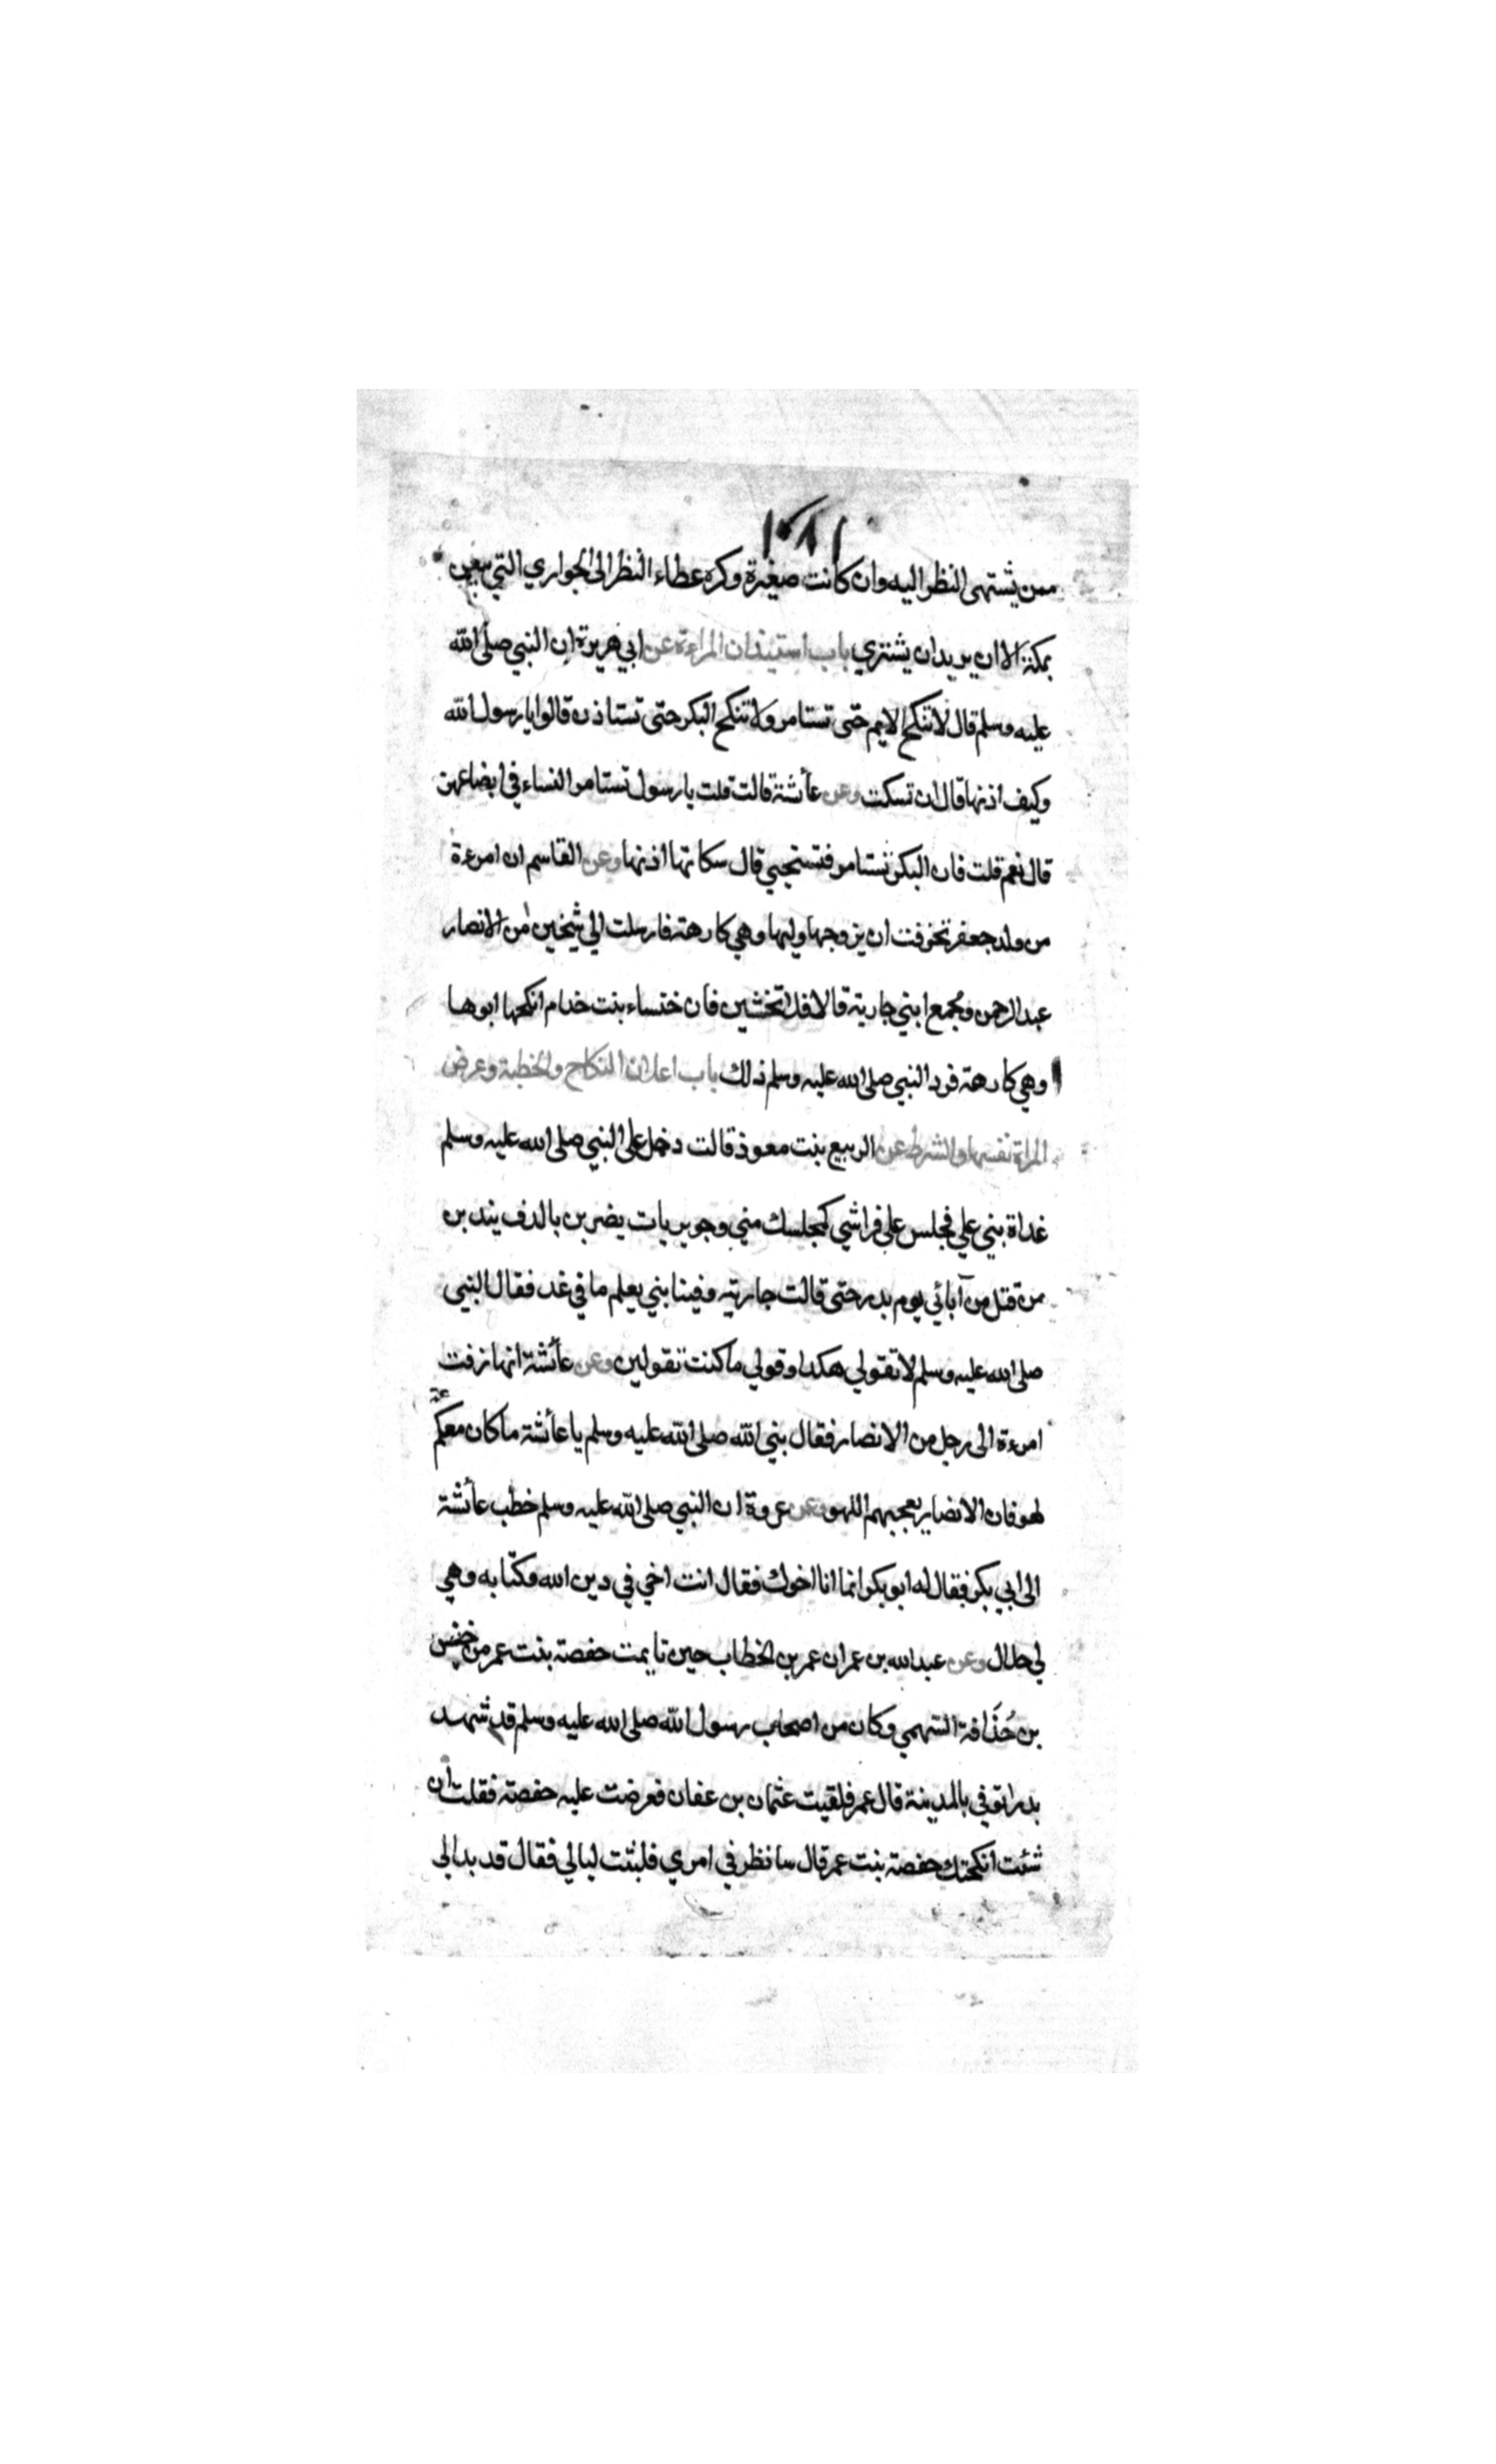 ١٠٨١
ممن يشتهى النظر اليه وان كانت صغيرة وكره عطاء النظر الى الجواري التي يبعن
بمكة الا ان يريد ان يشتري باب استيذان المراءة عن ابي هريرة ان النبي صلى الله
عليه وسلم قال لا تنكح الايم حتى تستامر ولا تنكح البكر حتى تستاذن قالوا يا رسول الله
وكيف اذنها قال ان تسكت وعن عائشة قالت قلت يا رسول تستامر النساء في ابضاعهن
قال نعم قلت فان البكر تستامر فتستحيي قال سكاتها اذنها وعن القاسم ان امرءة
من ولد جعفر تخوفت ان يزوجها وليها وهي كارهة فارسلت الي شيخين من الانصار
عبد الرحمن ومجمع ابني جارية قالا فلا تخشين فان خنساء بنت خدام انكحها ابوها
وهي كارهة فرد النبي صلى الله عليه وسلم ذلك باب اعلان النكاح والخطبة وعرض
المراة نفسها والشرط عن الربيع بنت معوذ قالت دخل على النبي صلى الله عليه وسلم
غداة بني علي فجلس على فراشي كمجلسك مني وجويريات يضربن بالدف يندبن
من قتل من آبائي يوم بدر حتى قالت جارية وفينا نبي يعلم ما في غد فقال النبي
صلى الله عليه وسلم لا تقولي هكذا وقولي ما كنت تقولين وعن عائشة انها زفت
امرءة الى رجل من الانصار فقال نبي الله صلى الله عليه وسلم يا عائشة ما كان معكم
لهو فان الانصار يعجبهم اللهو وعن عروة ان النبي صلى الله عليه وسلم خطب عائشة
الى ابي بكر فقال له ابو بكر انما انا اخوك فقال انت اخي في دين الله وكتابه وهي
لي حلال وعن عبد الله بن عمر ان عمر بن الخطاب حين تايمت حفصة بنت عمر من خنيس
بن حُذَافة السهمي وكان من اصحاب رسول الله صلى الله عليه وسلم قد شهد
بدرا توفي بالمدينة قال عمر فلقيت عثمان بن عفان فعرضت عليه حفصة فقلت ان
شئت انكحتك حفصة بنت عمر قال سانظر في امري فلبثت ليالي فقال قد بدا لي